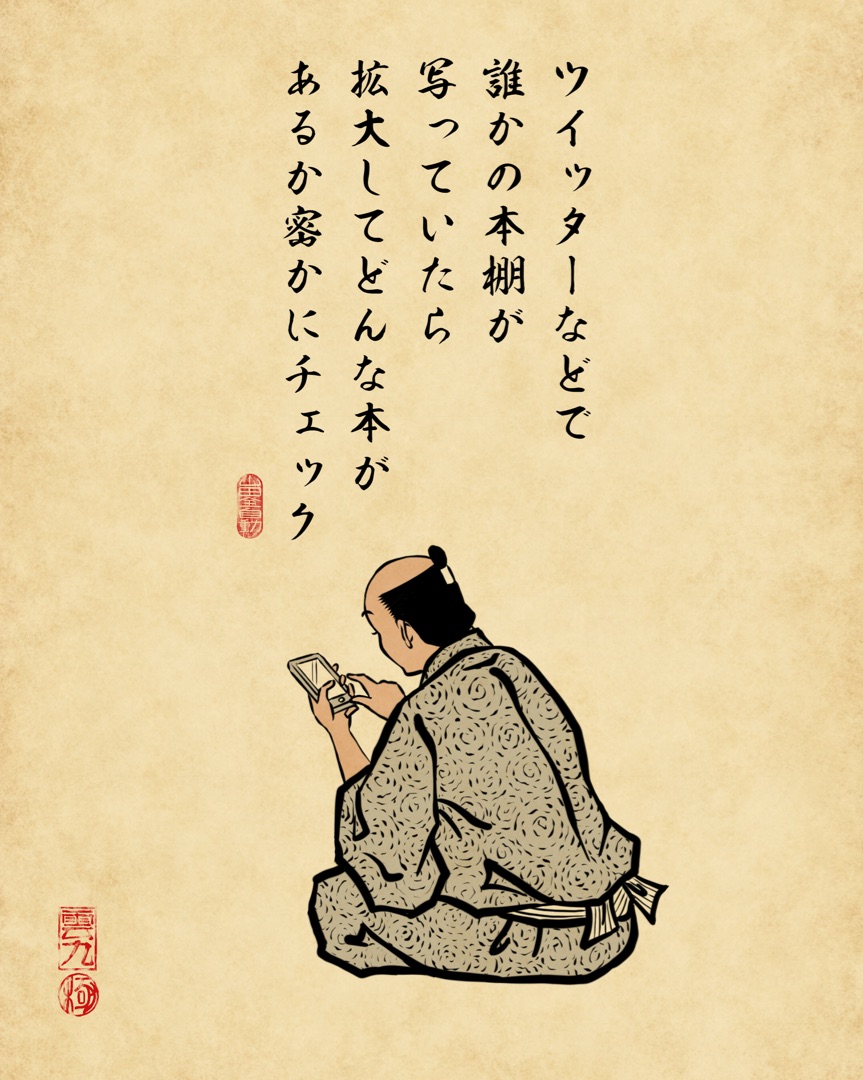 ツイッターなどで
誰かの本棚が
写っていたら
拡大してどんな本が
あるか密かにチェック